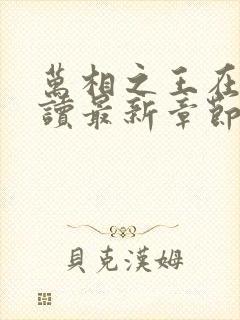 萬相之王在
讀最新章節
貝克漢姆